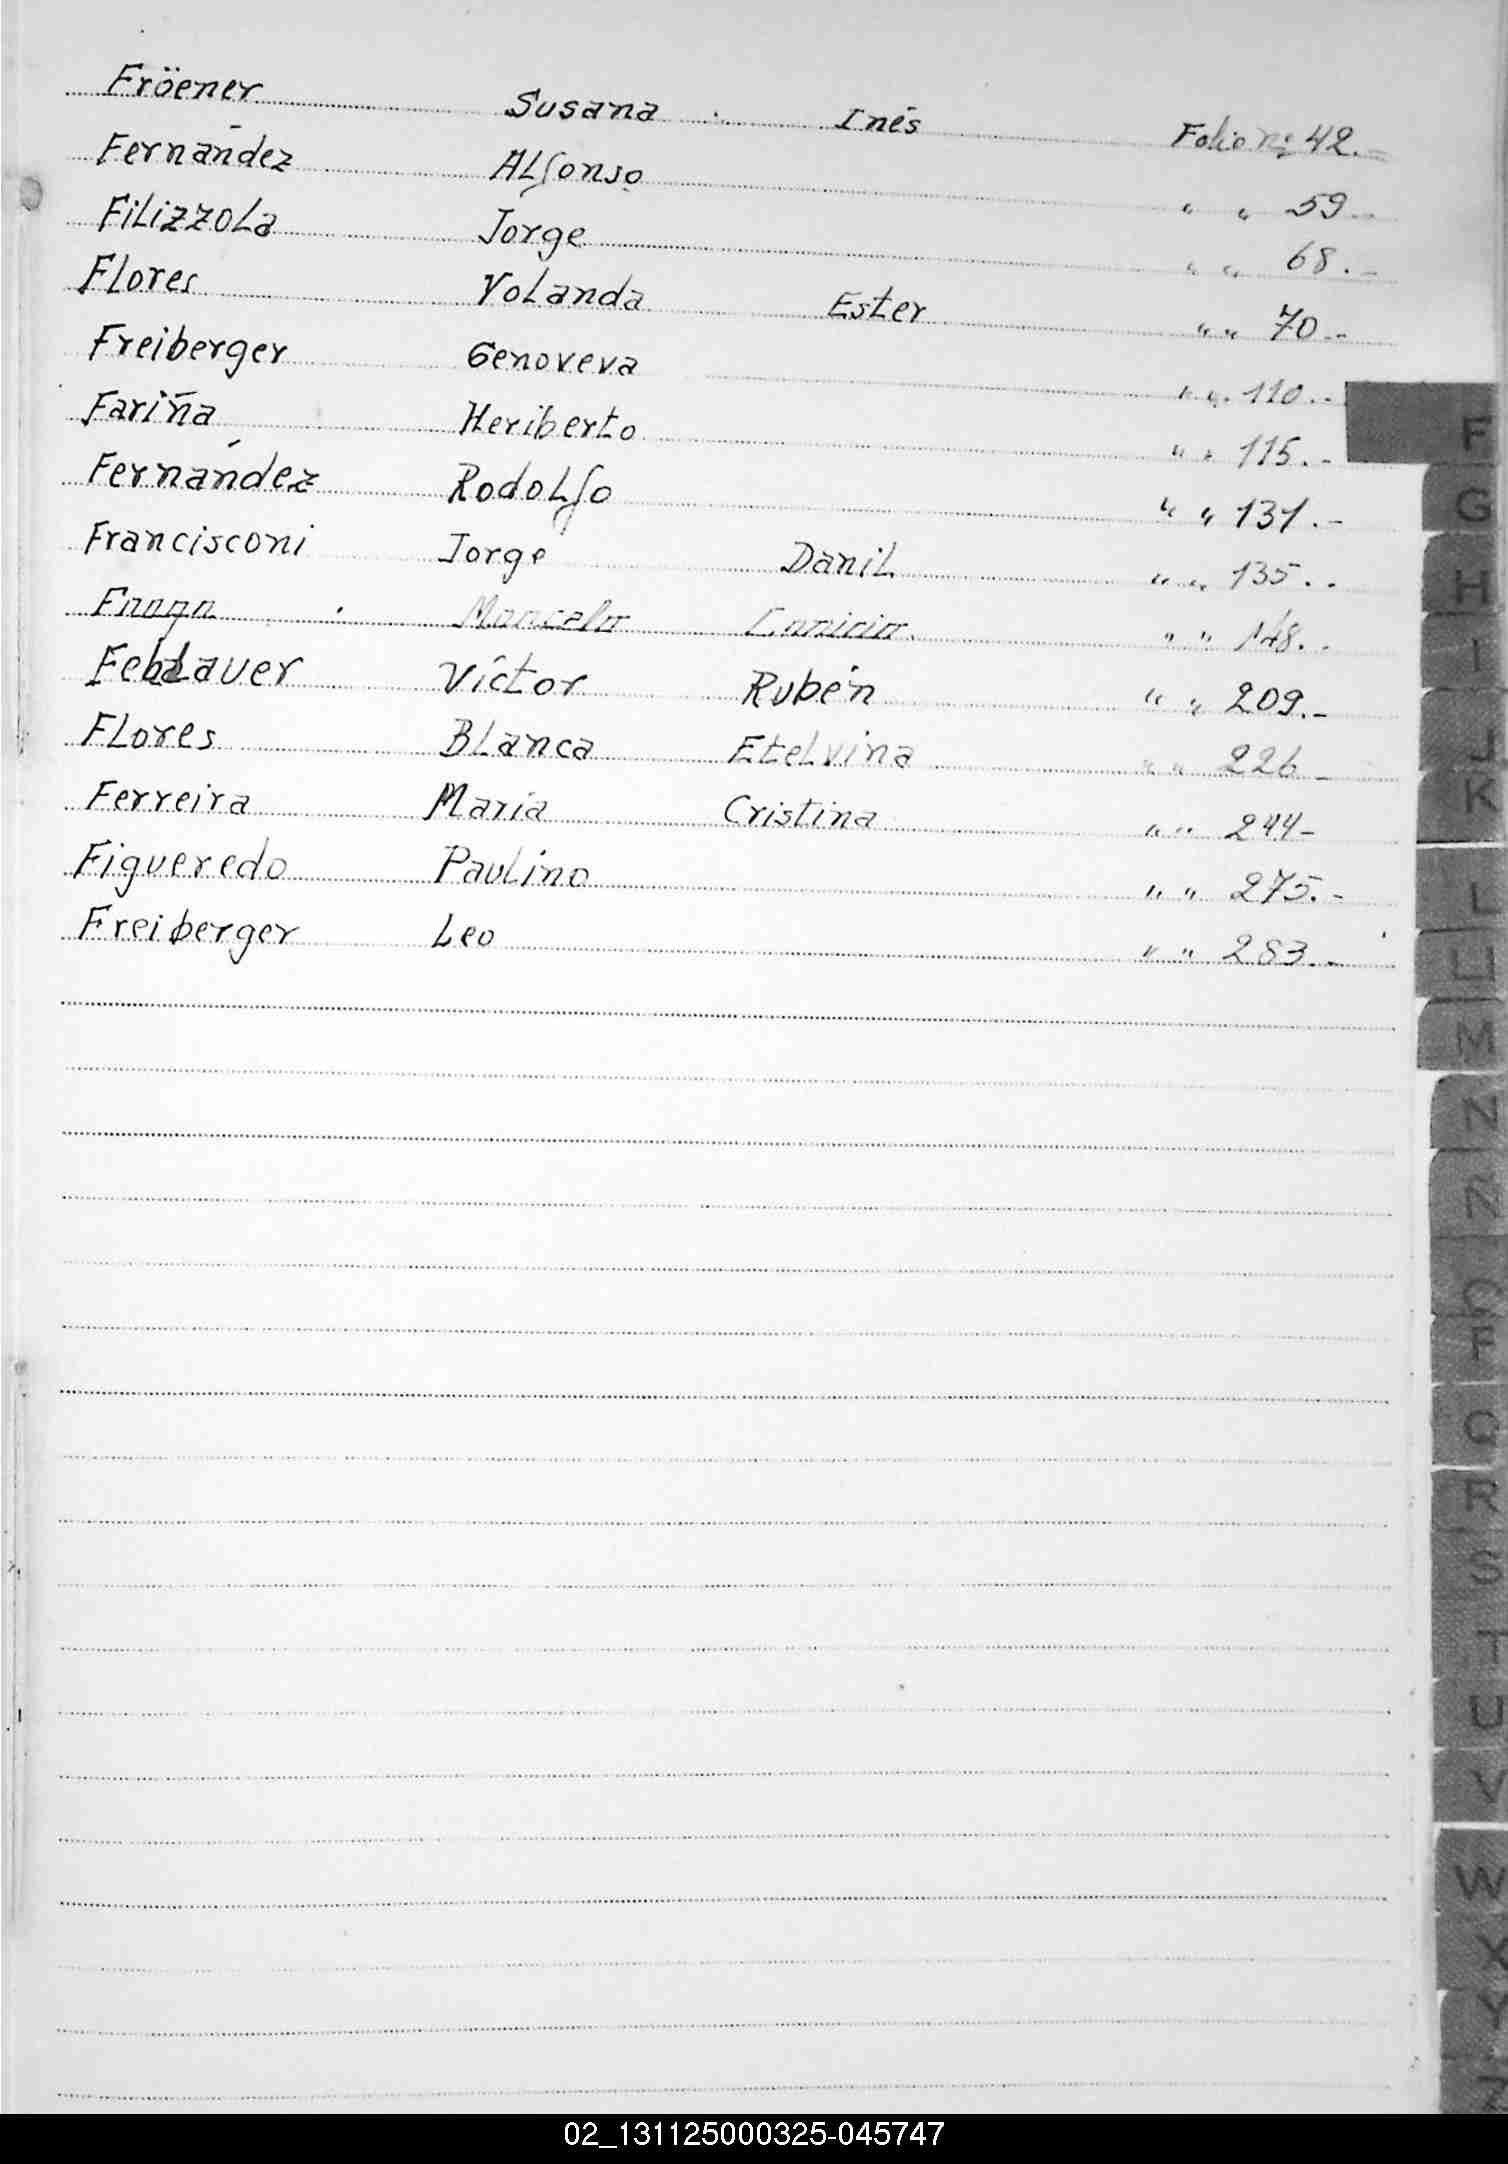 Fröener Susana Inés Folio nº 42.-
Fernández Alfonso " " 59.-
Filizzola Jorge " " 68.-
Flores Yolanda Ester " " 70.-
Freiberger Genoveva " " 110.-
Fariña Heriberto " " 115.-
Fernández Rodolfo " " 131.-
Francisconi Jorge Danil " " 135.-
Marcelo " " 148.-
Víctor Rubén " " 209.-
Flores Blanca Etelvina " " 226-
Ferreira María Cristina " " 244-
Figueredo Paulino " " 275.-
Freiberger Leo " " 283.-
F
G
H
I
J
K
L
LL
M
N
Ñ
O
P
Q
R
S
T
U
V
W
X
Y
Z
02_131125000325-045747